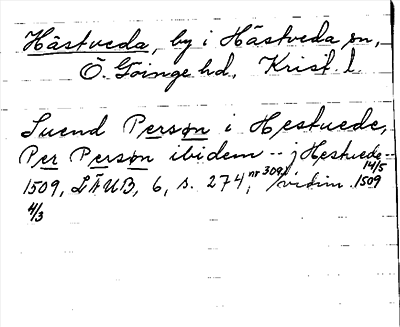 Hästveda, by i Hästveda sn,
Ö. Göinge hd., Krist. l.
Suend Person i Hestuede,
Per Person ibidem -- j Hestuede --
1509, LÄUB, 6, s. 274, nr 309, vidim. 14/5 1509
4/3